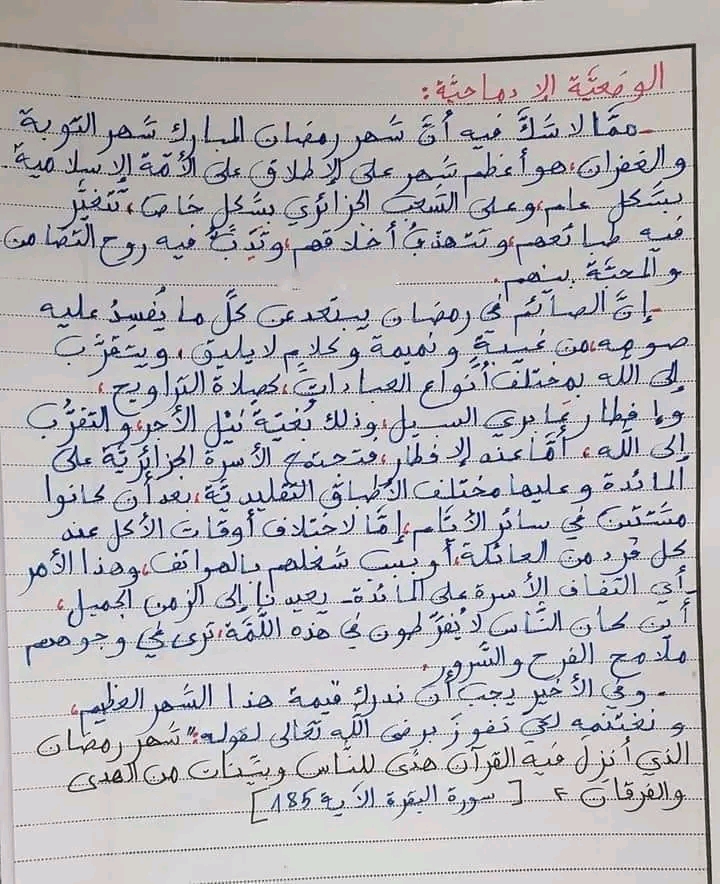 الوضعيّة الإدماجيّة:
- ممّا لا شكَّ فيه أنَّ شهر رمضان المبارك شهر التوبة
والغفران، هو أعظم شهر على الإطلاق على الأمّة الإسلامية
بشكل عام، وعلى الشّعب الجزائري بشكل خاص، تتغيّر
فيه طبائعهم، وتتهذبُ أخلاقهم، وتَدِبُّ فيه روح التضامن
والمحبّة بينهم.
- إنَّ الصائم في رمضان يبتعد عن كلّ ما يُفسِدُ عليه
صومه، من غيبة ونميمة وكلام لا يليق، ويتقرَّب
إلى الله بمختلف أنواع العبادات، كصلاة التراويح،
وإفطار عابري السبيل، وذلك بُغيَةَ نيْل الأجر، والتقرُّب
إلى اللّه، أمّا عند الإفطار، فتجتمع الأسرة الجزائريّة على
المائدة وعليها مختلف الأطباق التقليديّة، بعد أن كانوا
مشتّتين في سائر الأيّام، إمّا لاختلاف أوقات الأكل عند
كل فرد من العائلة، أو بسبب شغلهم بالهواتف، وهذا الأمر
- أي التفاف الأسرة على المائدة - يعيدنا إلى الزمن الجميل،
أين كان النّاس لا يُفرّطون في هذه اللّمّة، ترى في وجوههم
ملامح الفرح والسّرور.
- وفي الأخير يجب أن ندرك قيمة هذا الشهر العظيم،
ونغتنمه لكي نفوز برضى اللّه تعالى لقوله: "شهر رمضان
الذي أنزل فيه القرآن هدًى للنّاس وبيّنات من الهدى
والفرقان" [سورة البقرة الآية 185]